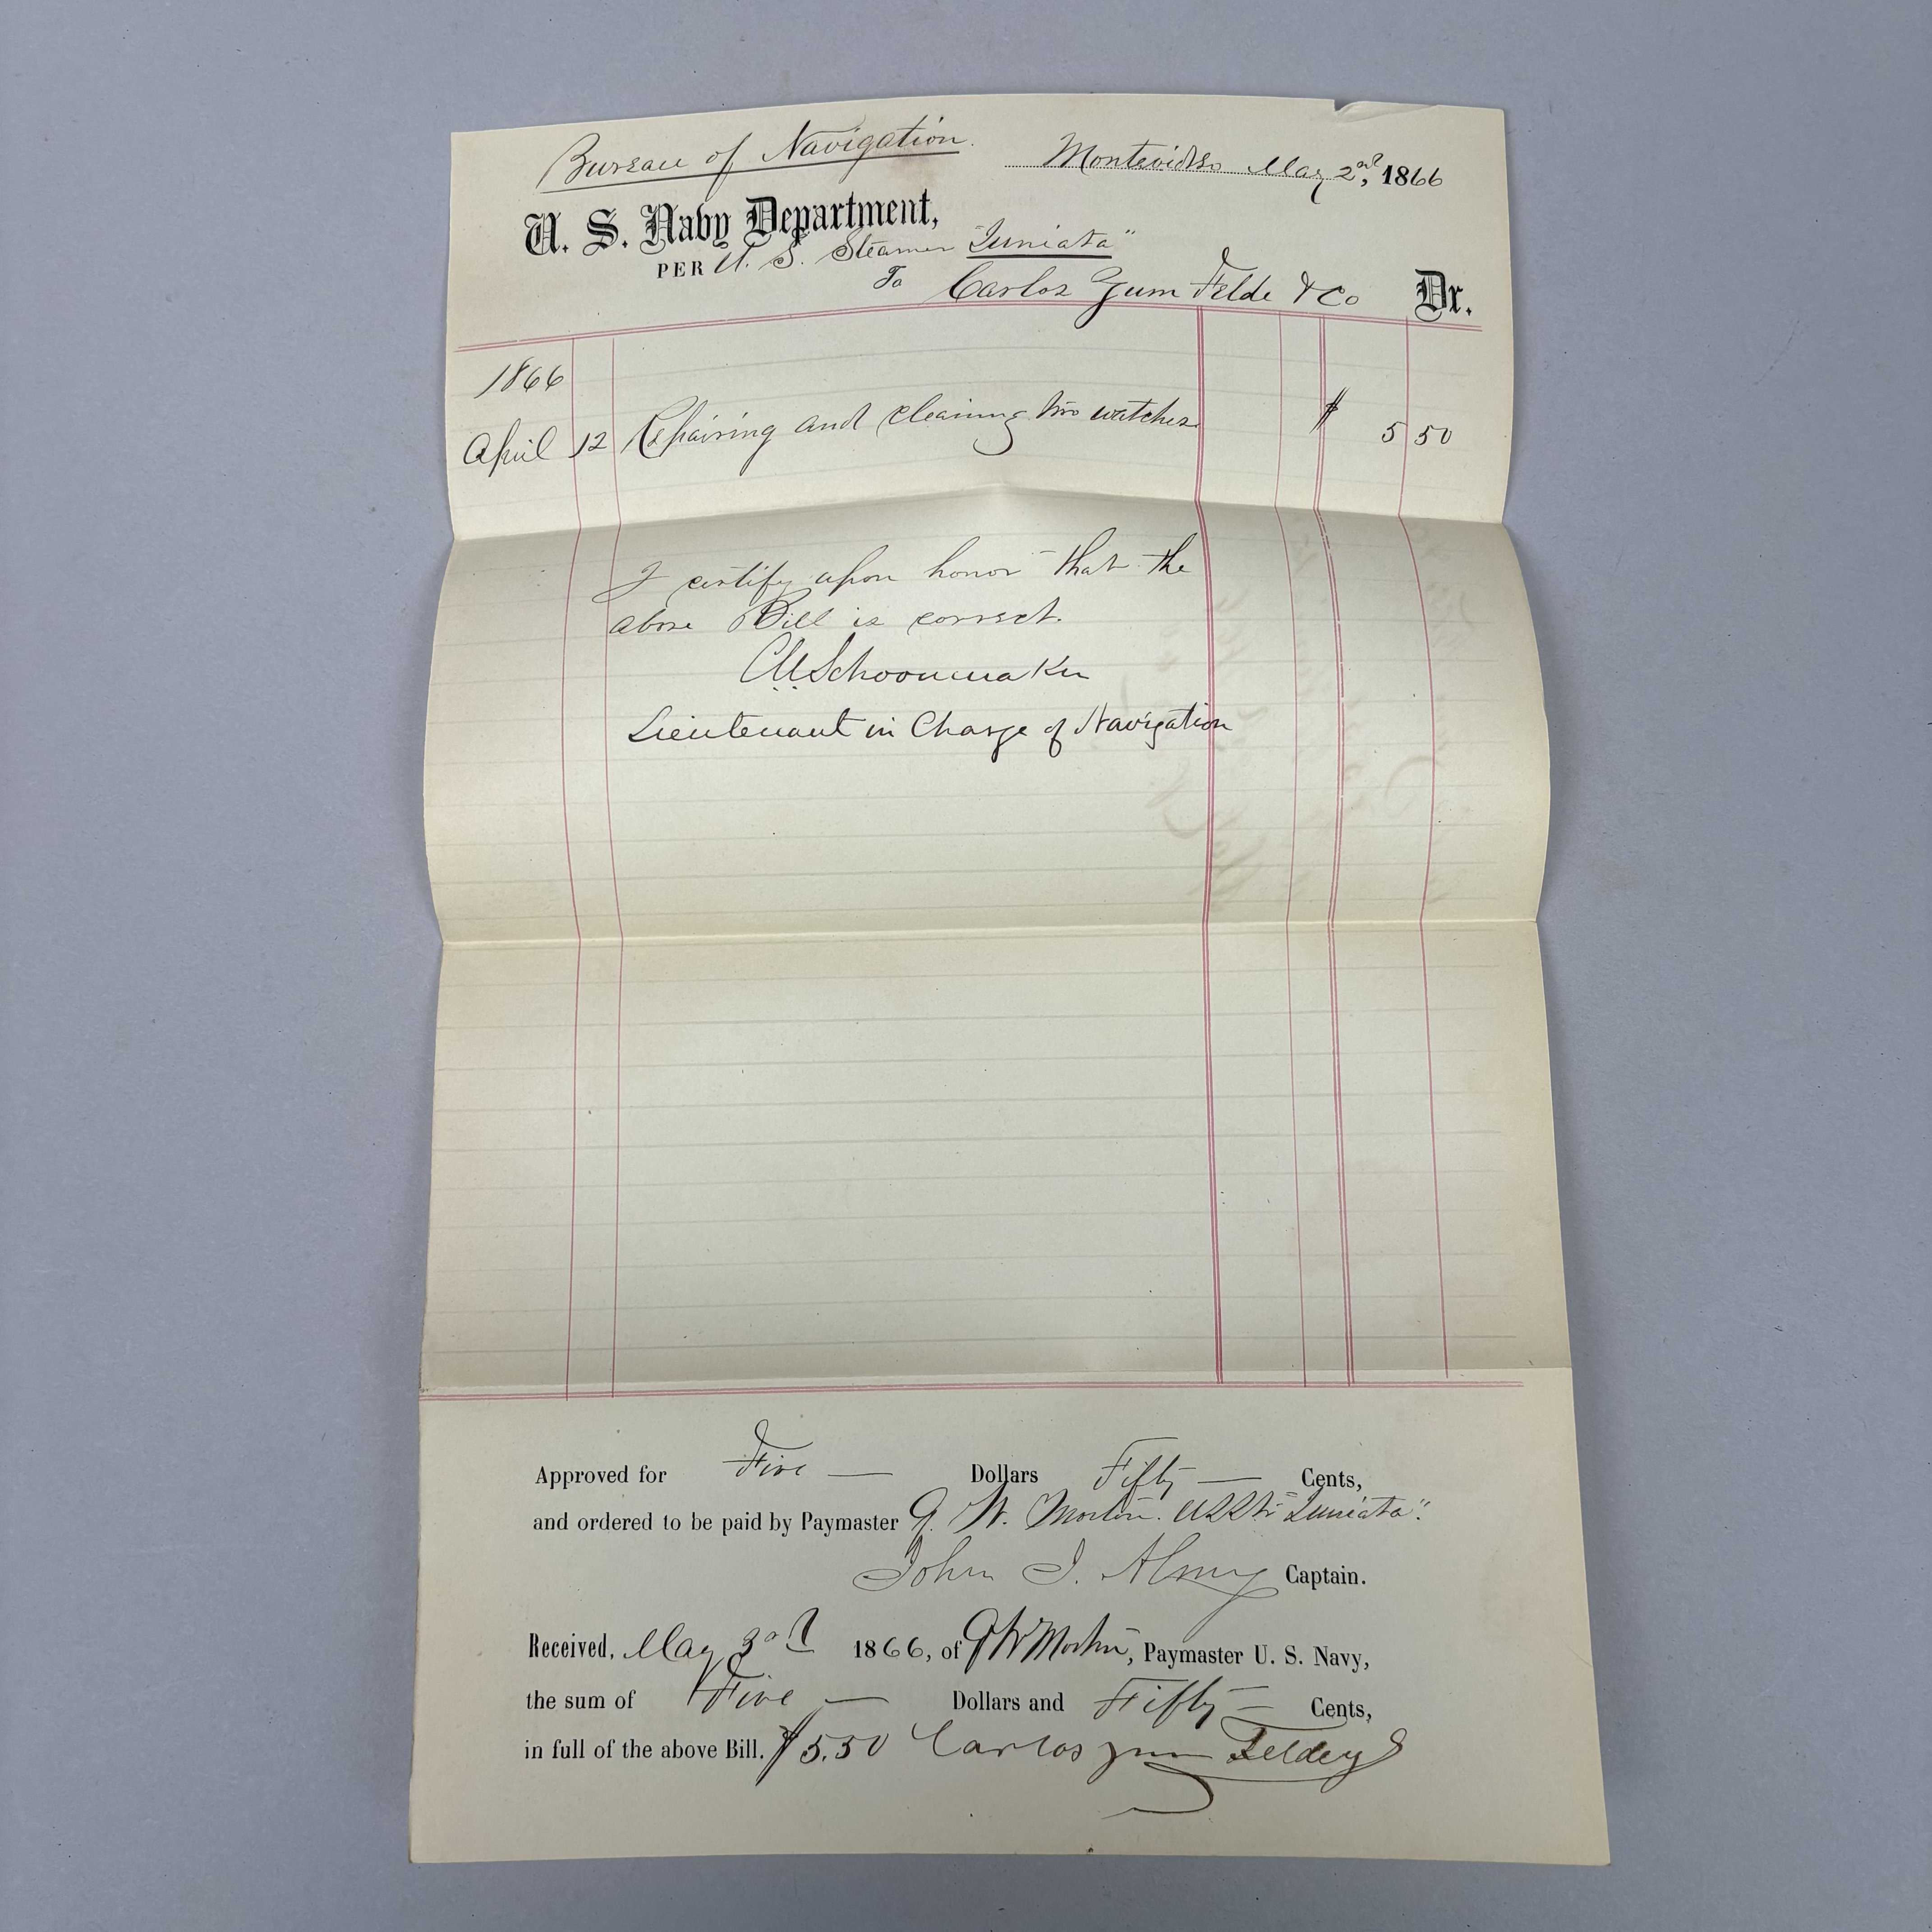 Bureau of Navigation.
Montevideo May 2nd, 1866
U. S. Navy Department,
PER U. S. Steamer "Juniata"
To Carlos Zum Felde & Co Dr.
1866
April 12 Repairing and cleaning two watches $ 5 50
I certify upon honor that the
above Bill is correct.
CM Schoonmaker
Lieutenant in Charge of Navigation
Approved for Five — Dollars Fifty — Cents,
and ordered to be paid by Paymaster G. W. Morton. "Juniata".
John J. Almy Captain.
Received, May 3rd 1866, of G W Morton, Paymaster U. S. Navy,
the sum of Five — Dollars and Fifty — Cents,
in full of the above Bill. $5.50 Carlos zum Felde